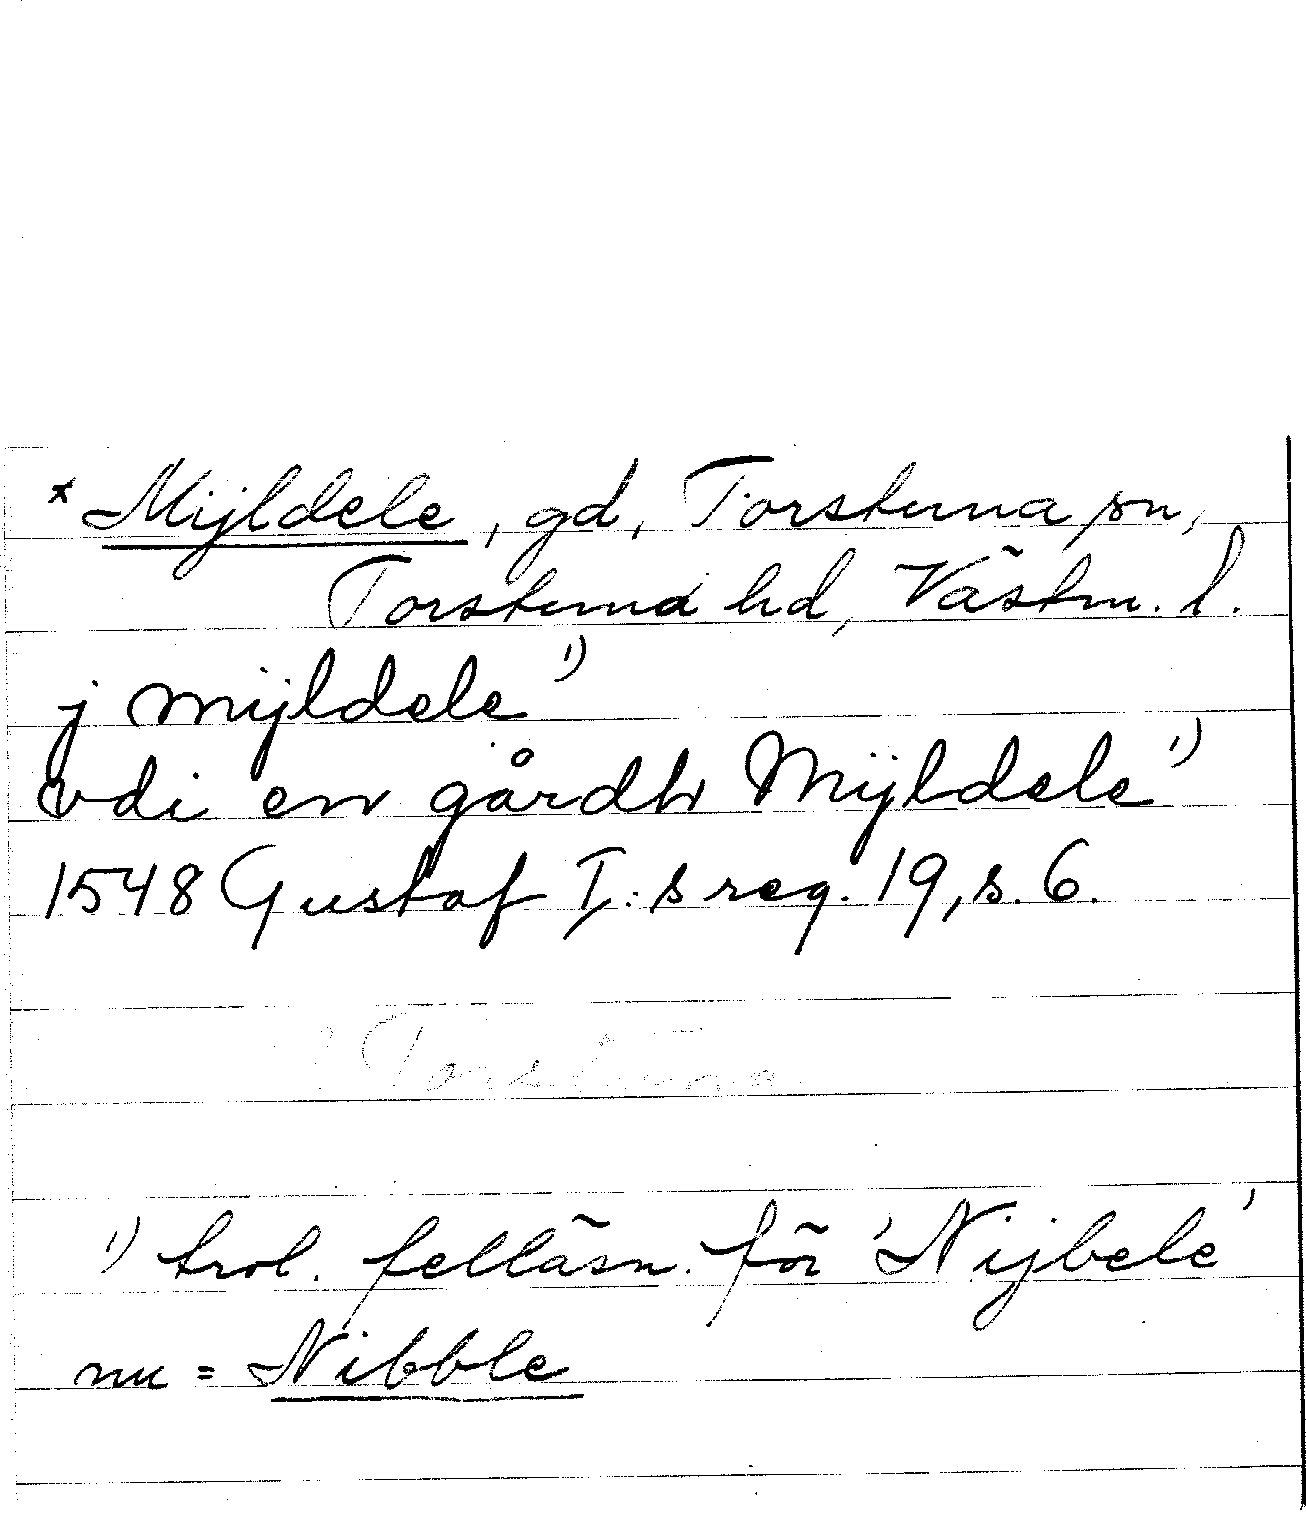 * Mijldele, gd, Torstuna sn,
Torstuna hd, Västm. l.
j mijldele 1)
vdi en gårdh Mijldele 1)
1548 Gustaf I:s reg. 19, s. 6.
? Torstuna
1) trol. felläsn. för 'Nijbele'
nu = Nibble